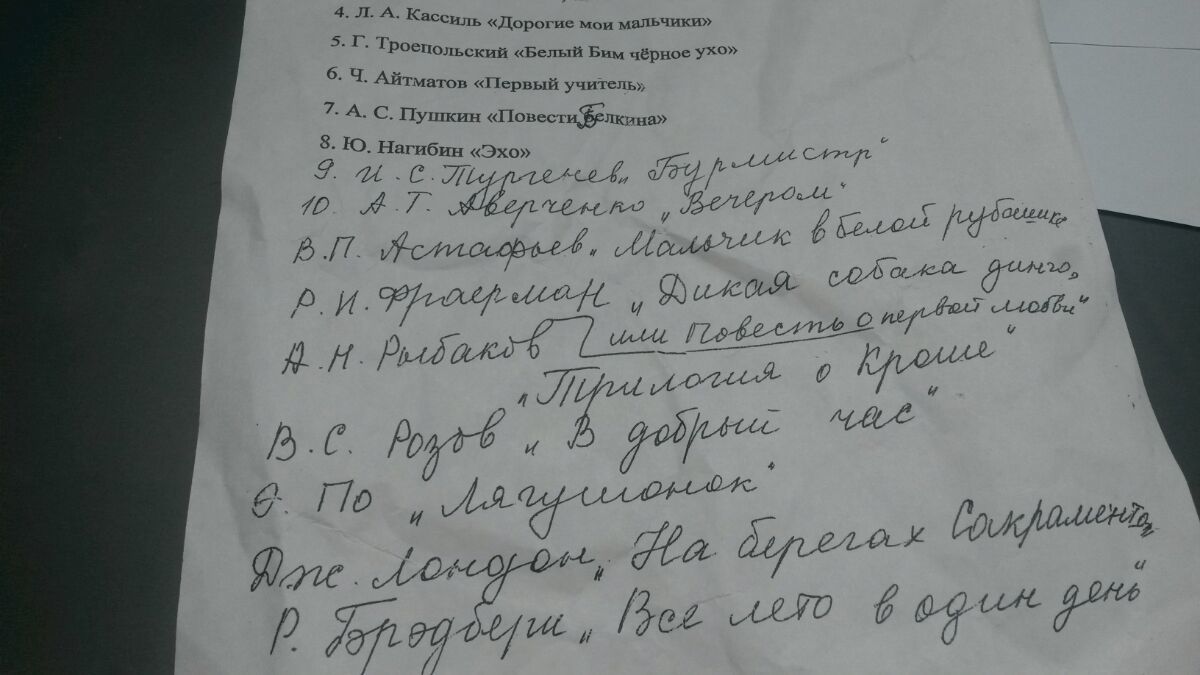 4. Л. А. Кассиль «Дорогие мои мальчики»
5. Г. Троепольский «Белый Бим чёрное ухо»
6. Ч. Айтматов «Первый учитель»
7. А. С. Пушкин «Повести Белкина»
8. Ю. Нагибин «Эхо»
9. И. С. Тургенев „Бурмистр"
10. А. Т. Аверченко „Вечером"
В. П. Астафьев „Мальчик в белой рубашке
Р. И. Фраерман „Дикая собака динго,
А. Н. Рыбаков или повесть о первой любви"
„Трилогия о Кроше"
В. С. Розов „В добрый час"
Э. По „Лягушонок"
Дж. Лондон „На берегах Сакраменто"
Р. Бэрэдбери „Все лето в один день"